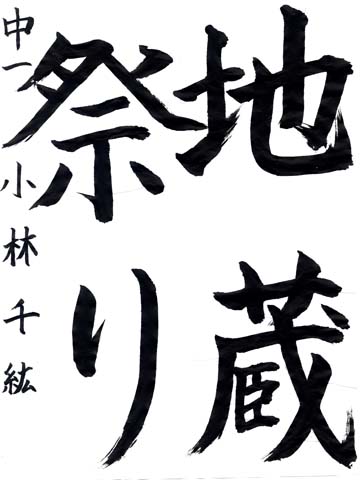 地蔵
祭り
中一 小林千紘